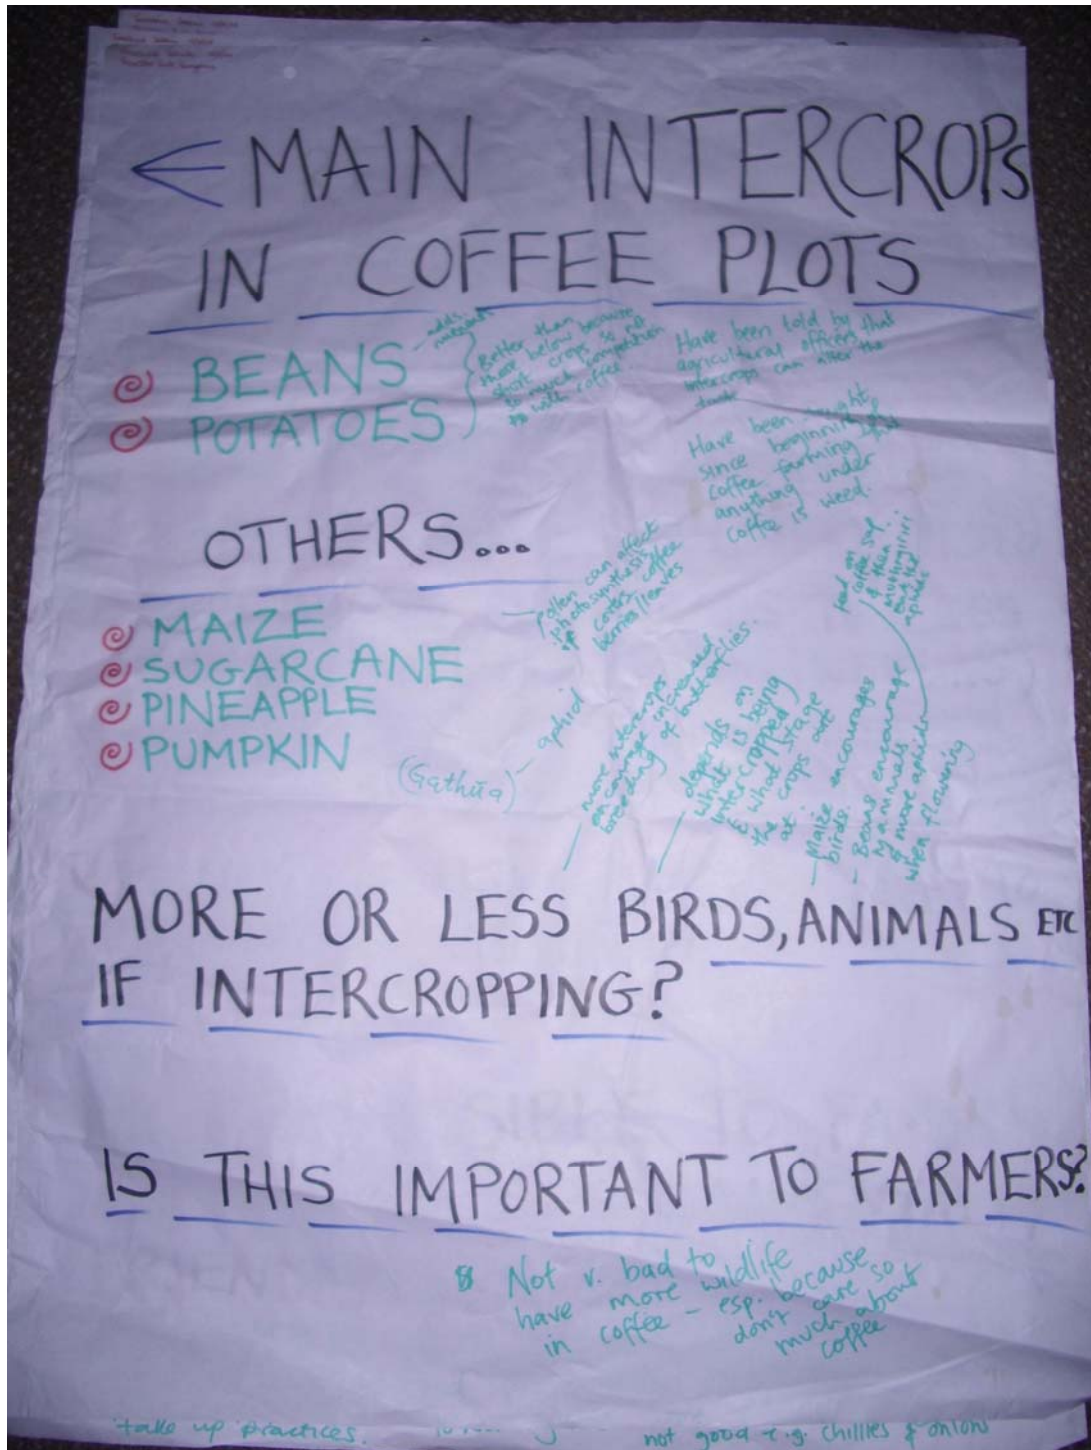 MAIN INTERCROPS
IN COFFEE PLOTS
BEANS
POTATOES
adds
nutrients
Better than
those below because
short crops so no
so much competition
with coffee.
Have been told by
agricultural officers that
intercrops can alter the
taste
Have been taught
since beginning of
coffee farming that
anything under
coffee is weed.
OTHERS...
MAIZE
SUGARCANE
PINEAPPLE
PUMPKIN
pollen can affect
photosynthesis
if covers coffee
berries/leaves
(Gathũa) - aphid
feed on
coffee sap
& then
aphids
more intercrops
encourage increased
breeding of butterflies.
depends on
what is being
intercropped
& what stage
the crops are
at.
- Maize encourages
birds.
- Beans encourage
mammals
& more aphids
when flowering
MORE OR LESS BIRDS, ANIMALS ETC
IF INTERCROPPING?
IS THIS IMPORTANT TO FARMERS?
Not v. bad to
have more wildlife
in coffee - esp. because
don't care so
much about
coffee
take up practices.
not good e.g. chillies & onions